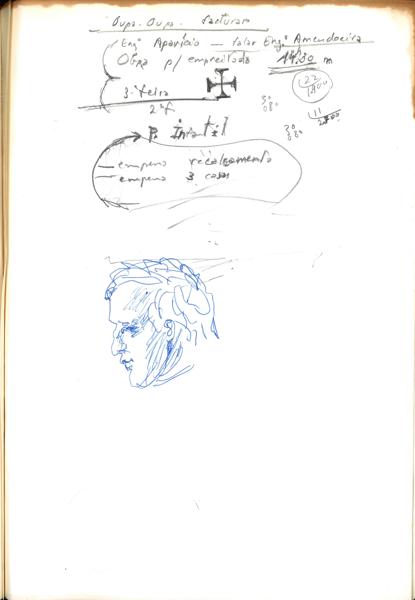 Oupa. Oupa. facturar
Engº Aparício — falar Engº Amendoeira
Obra p/ empreitada 14.30 m
122
3ª feira
2ª f.
30
080
11
30
080
P. Infantil
empena recalçamento
empena 3 casas